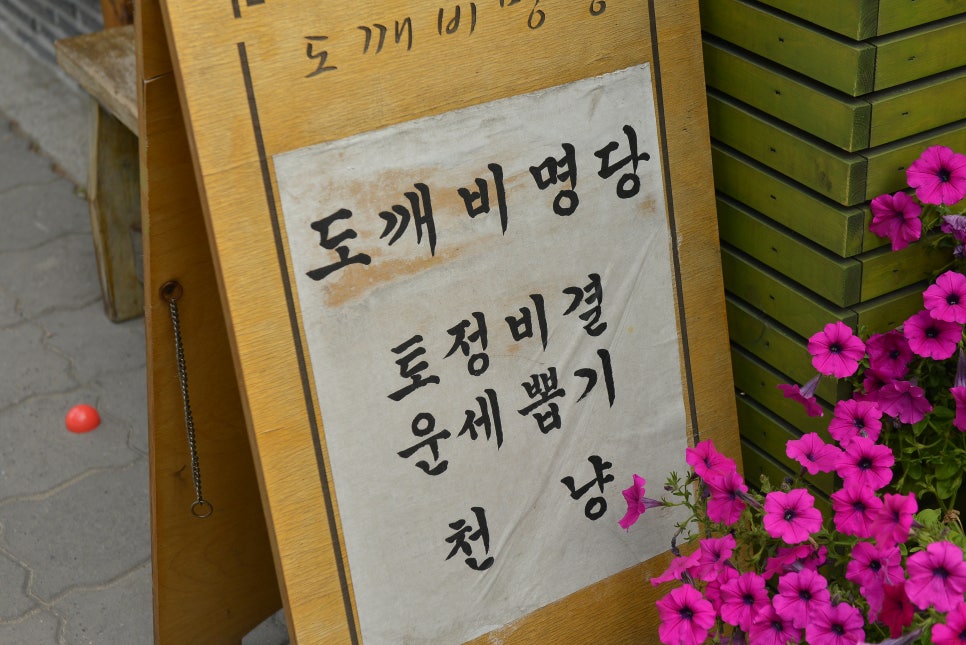 도깨비명당
도깨비명당
토정비결
운세뽑기
천 냥